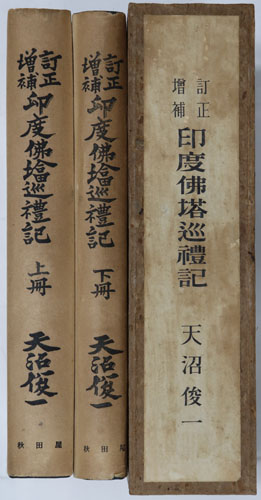 訂正
增補
印度佛塔巡禮記
上冊
天沼俊一
秋田屋
訂正
增補
印度佛塔巡禮記
下冊
天沼俊一
秋田屋
訂正
增補
印度佛塔巡禮記
天沼俊一